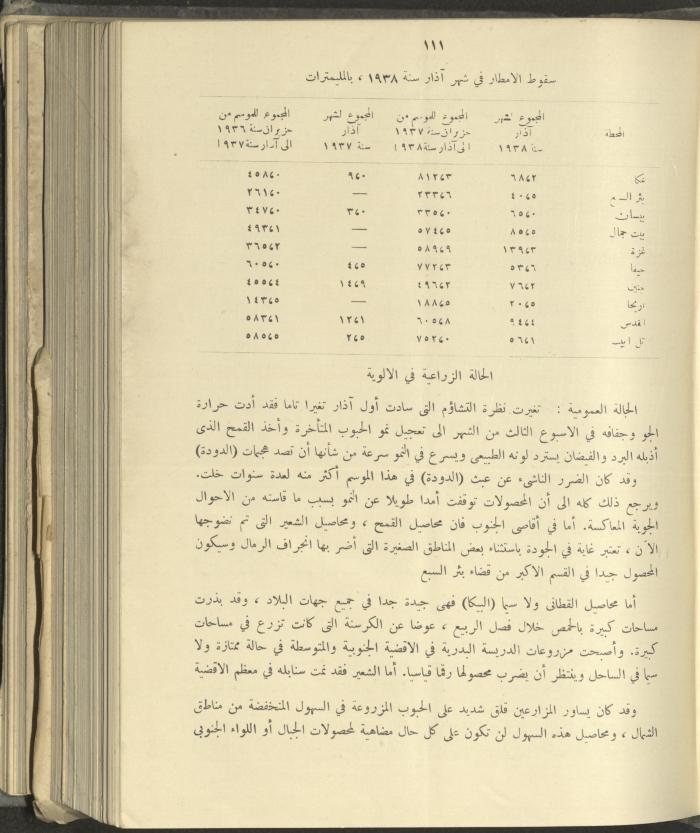 ١١١
سقوط الامطار في شهر آذار سنة ١٩٣٨ ، بالمليمترات
المجموع لشهر المجموع للموسم من المجموع لشهر المجموع للموسم من
المحطة آذار حزيران سنة ١٩٣٧ آذار حزيران سنة ١٩٣٦
سنة ١٩٣٨ الى آذار سنة ١٩٣٨ سنة ١٩٣٧ الى آذار سنة ١٩٣٧
عكا ٦٨ء٢ ٨١٢ء٣ ٩ء٠ ٤٥٨ء٠
بئر السبع ٤٠ء٥ ٢٣٣ء٦ — ٢٦١ء٠
بيسان ٦٥ء٠ ٣٣٥ء٠ ٣ء٠ ٣٤٧ء٠
بيت جمال ٨٥ء٥ ٥٧٤ء٥ — ٤٩٣ء١
غزة ١٣٩ء٣ ٥٨٩ء٩ — ٣٦٥ء٢
حيفا ٥٣ء٦ ٧٧٢ء٣ ٤ء٥ ٦٠٥ء٠
جنين ٧٦ء٢ ٤٩٦ء٢ ١٤ء٩ ٤٥٥ء٤
اريحا ٢٠ء٥ ١٨٨ء٥ — ١٤٣ء٥
القدس ٩٤ء٤ ٦٠٥ء٨ ١٢ء١ ٥٨٣ء١
تل ابيب ٥٦ء١ ٧٥٢ء٠ ٢ء٥ ٥٨٥ء٥
الحالة الزراعية في الالوية
الحالة العمومية : تغيرت نظرة التشاؤم التى سادت أول آذار تغيرا تاما فقد أدت حرارة
الجو وجفافه في الاسبوع الثالث من الشهر الى تعجيل نمو الحبوب المتأخرة وأخذ القمح الذى
أذبله البرد والفيضان يسترد لونه الطبيعى ويسرع في النمو سرعة من شأنها أن تصد هجمات (الدودة)
وقد كان الضرر الناشىء عن عبث (الدودة) في هذا الموسم أكثر منه لعدة سنوات خلت.
ويرجع ذلك كله الى أن المحصولات توقفت أمدا طويلا عن النمو بسبب ما قاسته من الاحوال
الجوية المعاكسة. أما في أقاصى الجنوب فان محاصيل القمح ، ومحاصيل الشعير التى تم نضوجها
الآن ، تعتبر غاية في الجودة باستثناء بعض المناطق الصغيرة التى أضر بها انجراف الرمال وسيكون
المحصول جيدا في القسم الاكبر من قضاء بئر السبع
أما محاصيل القطانى ولا سيما (البيكا) فهى جيدة جدا في جميع جهات البلاد ، وقد بذرت
مساحات كبيرة بالحمص خلال فصل الربيع ، عوضا عن الكرسنة التى كانت تزرع في مساحات
كبيرة. وأصبحت مزروعات الدريسة البدرية في الاقضية الجنوبية والمتوسطة في حالة ممتازة ولا
سيما في الساحل وينتظر أن يضرب محصولها رقما قياسيا. أما الشعير فقد نمت سنابله في معظم الاقضية
وقد كان يساور المزارعين قلق شديد على الحبوب المزروعة في السهول المنخفضة من مناطق
الشمال ، ومحاصيل هذه السهول لن تكون على كل حال مضاهية لمحصولات الجبال أو اللواء الجنوبى